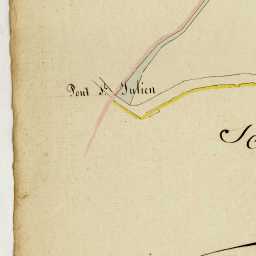 Pont St. Julien